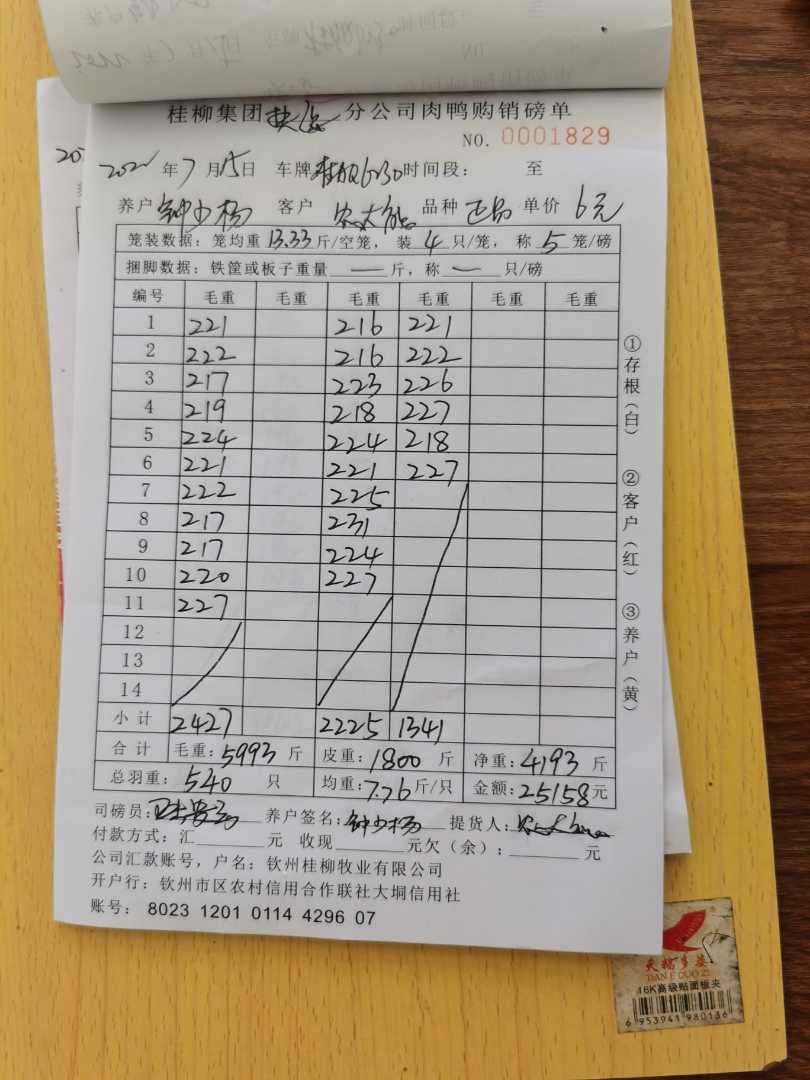 桂柳集团 分公司肉鸭购销磅单
NO. 0001829
年7月15日 车牌 6230 时间段： 至
养户 钟少杨 客户 品种 正品 单价 6元
笼装数据：笼均重 13.33 斤/空笼，装 4 只/笼，称 5 笼/磅
捆脚数据：铁筐或板子重量 — 斤，称 — 只/磅
编号 毛重 毛重 毛重 毛重 毛重 毛重
1 221 216 221
2 222 216 222
3 217 223 226
4 219 218 227
5 224 224 218
6 221 221 227
7 222 225
8 217 231
9 217 224
10 220 227
11 227
12
13
14
小计 2427 2225 1341
合计 毛重：5993 斤 皮重：1800 斤 净重：4193 斤
总羽重：540 只 均重：7.76 斤/只 金额：25158 元
司磅员： 养户签名：钟少杨 提货人：
付款方式：汇 元 收现 元欠（余）： 元
公司汇款账号，户名：钦州桂柳牧业有限公司
开户行：钦州市区农村信用合作联社大垌信用社
账号： 8023 1201 0114 4296 07
①存根（白）
②客户（红）
③养户（黄）
TIAN E DUO ZI
16K高级贴面板夹
6 953941 980136